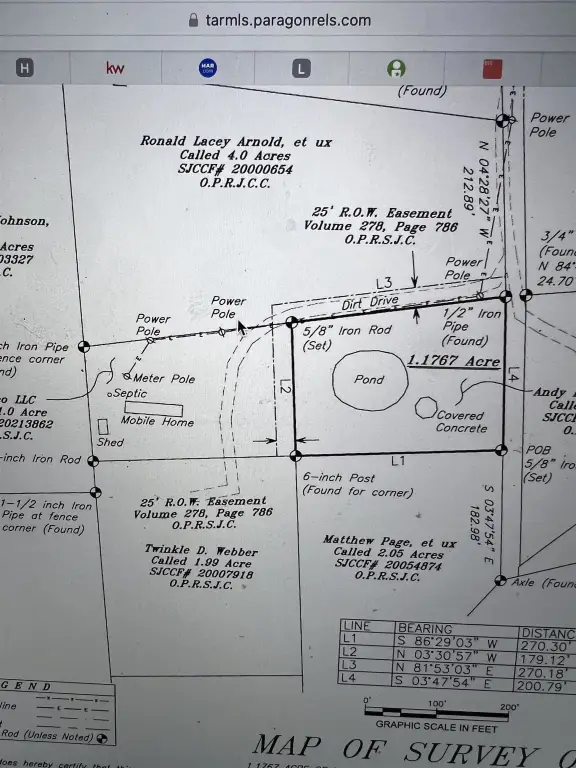 tarmls.paragonrels.com
H
kw
HAR
.com
L
(Found)
Power
Pole
Ronald Lacey Arnold, et ux
Called 4.0 Acres
SJCCF# 20000654
O.P.R.J.C.C.
N 04°28'27" W
212.89'
25' R.O.W. Easement
Volume 278, Page 786
O.P.R.S.J.C.
ohnson,
Acres
03327
.C.
3/4"
(Foun
N 84°
24.70
Power
Pole
L3
Dirt Drive
Power
Pole
Power
Pole
5/8" Iron Rod
(Set)
1/2" Iron
Pipe
(Found)
ch Iron Pipe
ence corner
nd)
1.1767 Acre
Meter Pole
Septic
Mobile Home
Shed
L2
Pond
L4
Covered
Concrete
Andy
Calle
SJCC
O.
o LLC
1.0 Acre
20213862
.S.J.C.
-inch Iron Rod
L1
POB
5/8" Iro
(Set)
6-inch Post
(Found for corner)
1-1/2 inch Iron
Pipe at fence
corner (Found)
25' R.O.W. Easement
Volume 278, Page 786
O.P.R.S.J.C.
S 03°47'54" E
182.98'
Twinkle D. Webber
Called 1.99 Acre
SJCCF# 20007918
O.P.R.J.C.C.
Matthew Page, et ux
Called 2.05 Acres
SJCCF# 20054874
O.P.R.J.C.C.
Axle (Foun
LINE BEARING DISTANC
L1 S 86°29'03" W 270.30'
L2 N 03°30'57" W 179.12'
L3 N 81°53'03" E 270.18'
L4 S 03°47'54" E 200.79'
GEND
line
Rod (Unless Noted)
0' 100' 200'
GRAPHIC SCALE IN FEET
MAP OF SURVEY O
does hereby certify that this